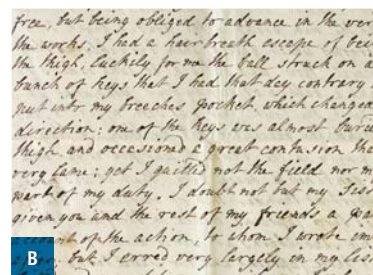 free, but being obliged to advance in the ver
the works, I had a hair breath escape of bei
the thigh, luckily for me the ball struck on a
bunch of keys that I had that day contrary
put into my breeches pocket, which changed
direction; one of the keys was almost burie
thigh and occasioned a great contusion tha
very lame; yet I quitted not the field nor
part of my duty. I doubt not but my
given you and the rest of my friends a
account of the action, to whom I wrote im
but I erred very largely in my
B